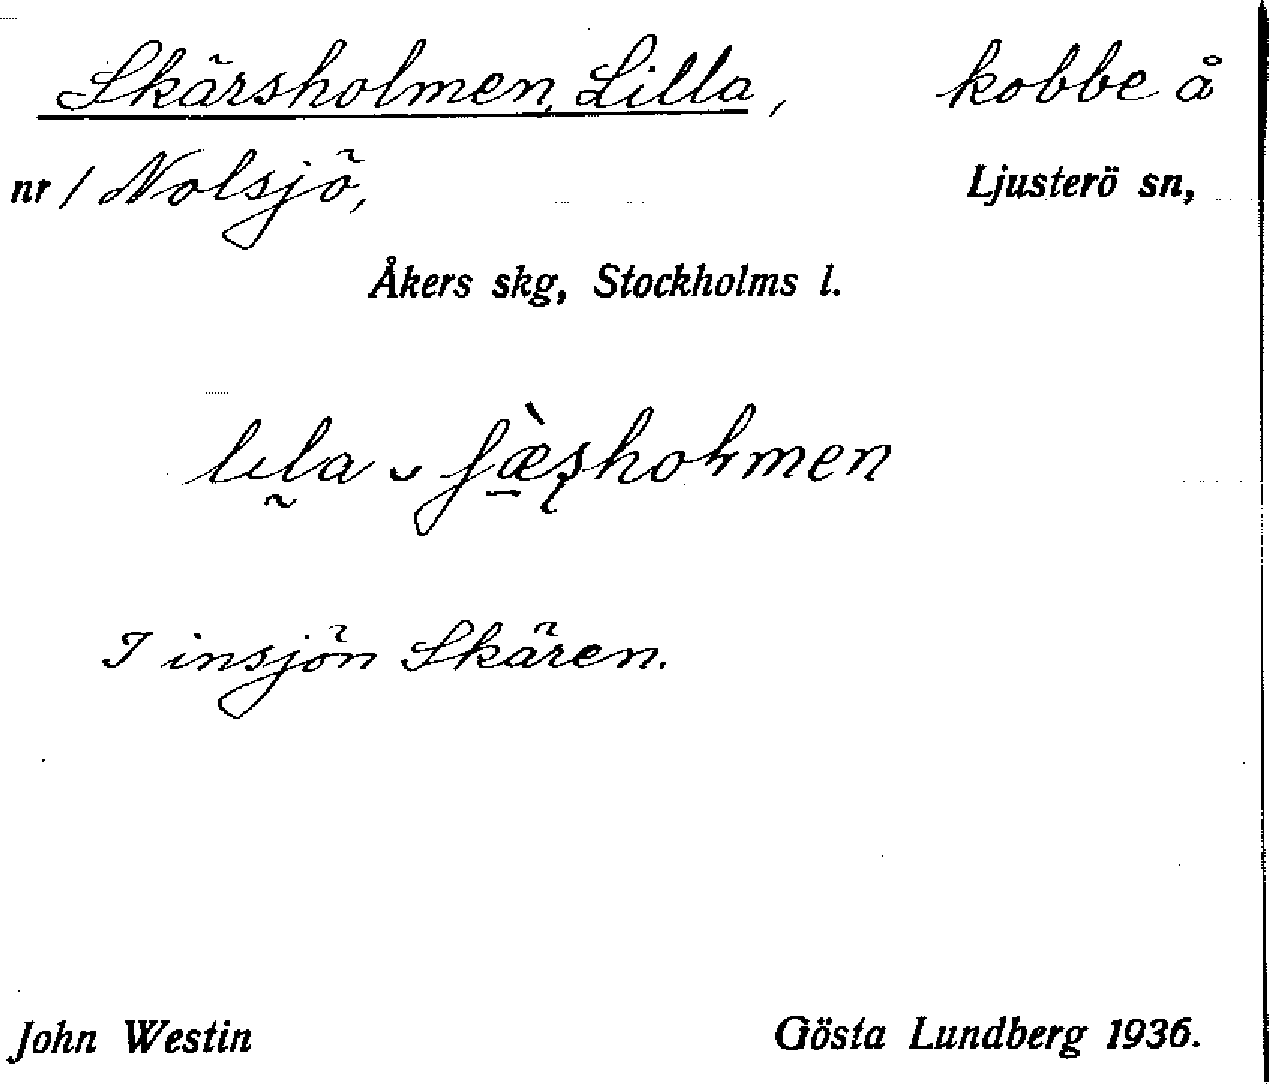 Skärsholmen, Lilla, kobbe å
nr 1 Nolsjö, Ljusterö sn,
Åkers skg, Stockholms l.
I insjön Skären.
John Westin Gösta Lundberg 1936.